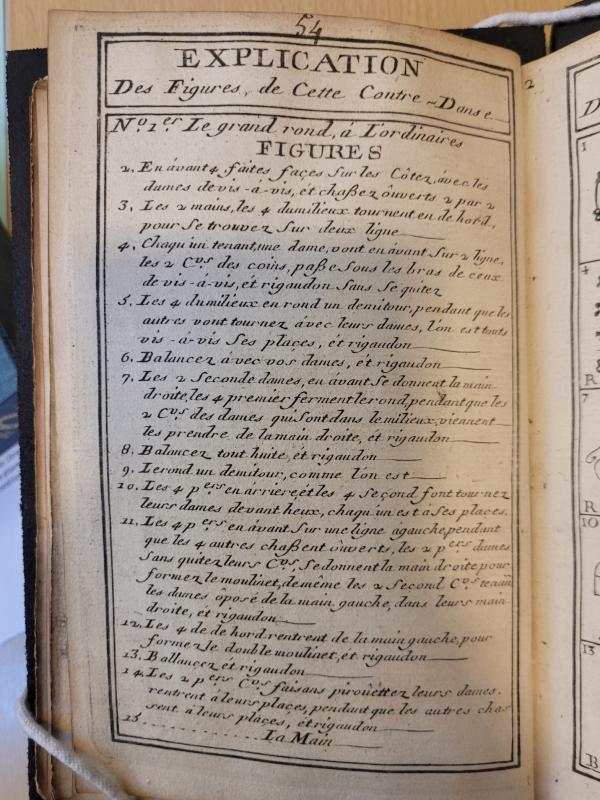 54
EXPLICATION
Des Figures, de Cette Contre-Danse
N.º 1.er Le grand rond, à L'ordinaires
FIGURES
2. En ávant 4, faites façes sur les Côtez, ávec les
dames de vis-á-vis, ét chaßez óuverts 2 par 2
3. Les 2 mains, les 4 dumilieux tournent en de hord,
pour se trouvez Sur deux ligne
4. Chaqu'un tenant, une dame, vont en ávant Sur 2 ligne,
les 2 C.vs des coins, paße Sous les bras de ceux
de vis-á-vis, ét rigaudon Sans se quitez
5. Les 4 dumilieux en rond un demitour, pendant que les
autres vont tournez ávec leurs dames, l'on est touts
vis-á-vis Ses plaçes, ét rigaudon
6. Balancez ávec vos dames, ét rigaudon
7. Les 2 Seconde dames, en ávant Se donnent la main
droite, les 4 premier ferment le rond, pendant que les
2 C.vs des dames qui sont dans le milieux, viennent
les prendre de la main droite, ét rigaudon
8. Balancez tout huite, ét rigaudon
9. Le rond un demitour, comme l'on est
10. Les 4 p.ers en árriere, ét les 4 Seçond font tournez
leurs dames devant heux, chaqu'un est à Ses plaçes.
11. Les 4 p.ers en ávant Sur une ligne ágauche, pendant
que les 4 autres chaßent óuverts, les 2 p.ers dames
Sans quitez leurs C.vs, Se donnent la main droite pour
formez le moulinet, de même les 2 Second C.vs tenant
les dames oposé de la main gauche, dans leurs main
droite, ét rigaudon
12. Les 4 de de hord rentrent de la main gauche, pour
formez le double moulinet, ét rigaudon
13. Ballançez ét rigaudon
14. Les 2 p.ers C.vs faisans piroüettez leurs dames,
rentrent á leurs plaçes, pendant que les autres chas
sent á leurs pláçes, ét rigaudon
15 La Main
2
D
1
4
R
7
R
10
13
B